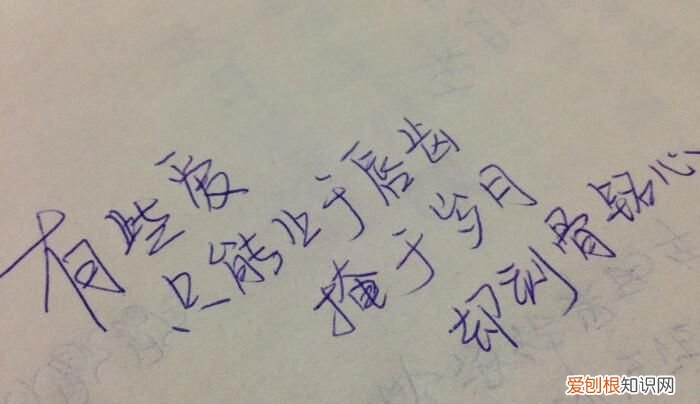 有些爱
只能止于唇齿
掩于岁月
却刻骨铭心
爱刨根知识网